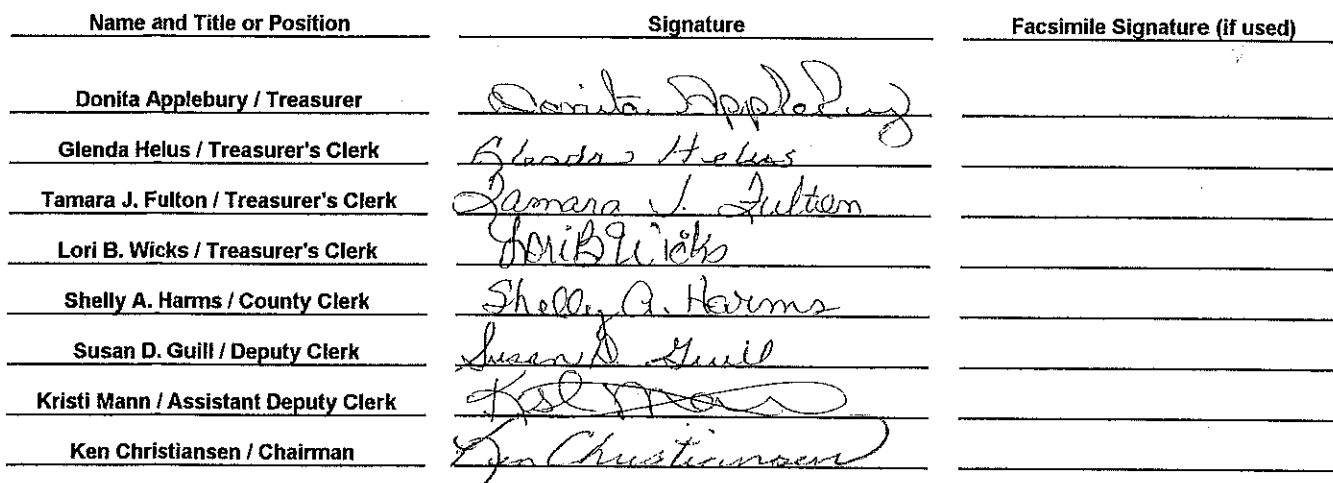 Name and Title or Position Signature Facsimile Signature (if used)
Donita Applebury / Treasurer Donita Applebury
Glenda Helus / Treasurer's Clerk Glenda Helus
Tamara J. Fulton / Treasurer's Clerk Tamara J. Fulton
Lori B. Wicks / Treasurer's Clerk Lori B Wicks
Shelly A. Harms / County Clerk Shelly A. Harms
Susan D. Guill / Deputy Clerk Susan D. Guill
Kristi Mann / Assistant Deputy Clerk
Ken Christiansen / Chairman Ken Christiansen